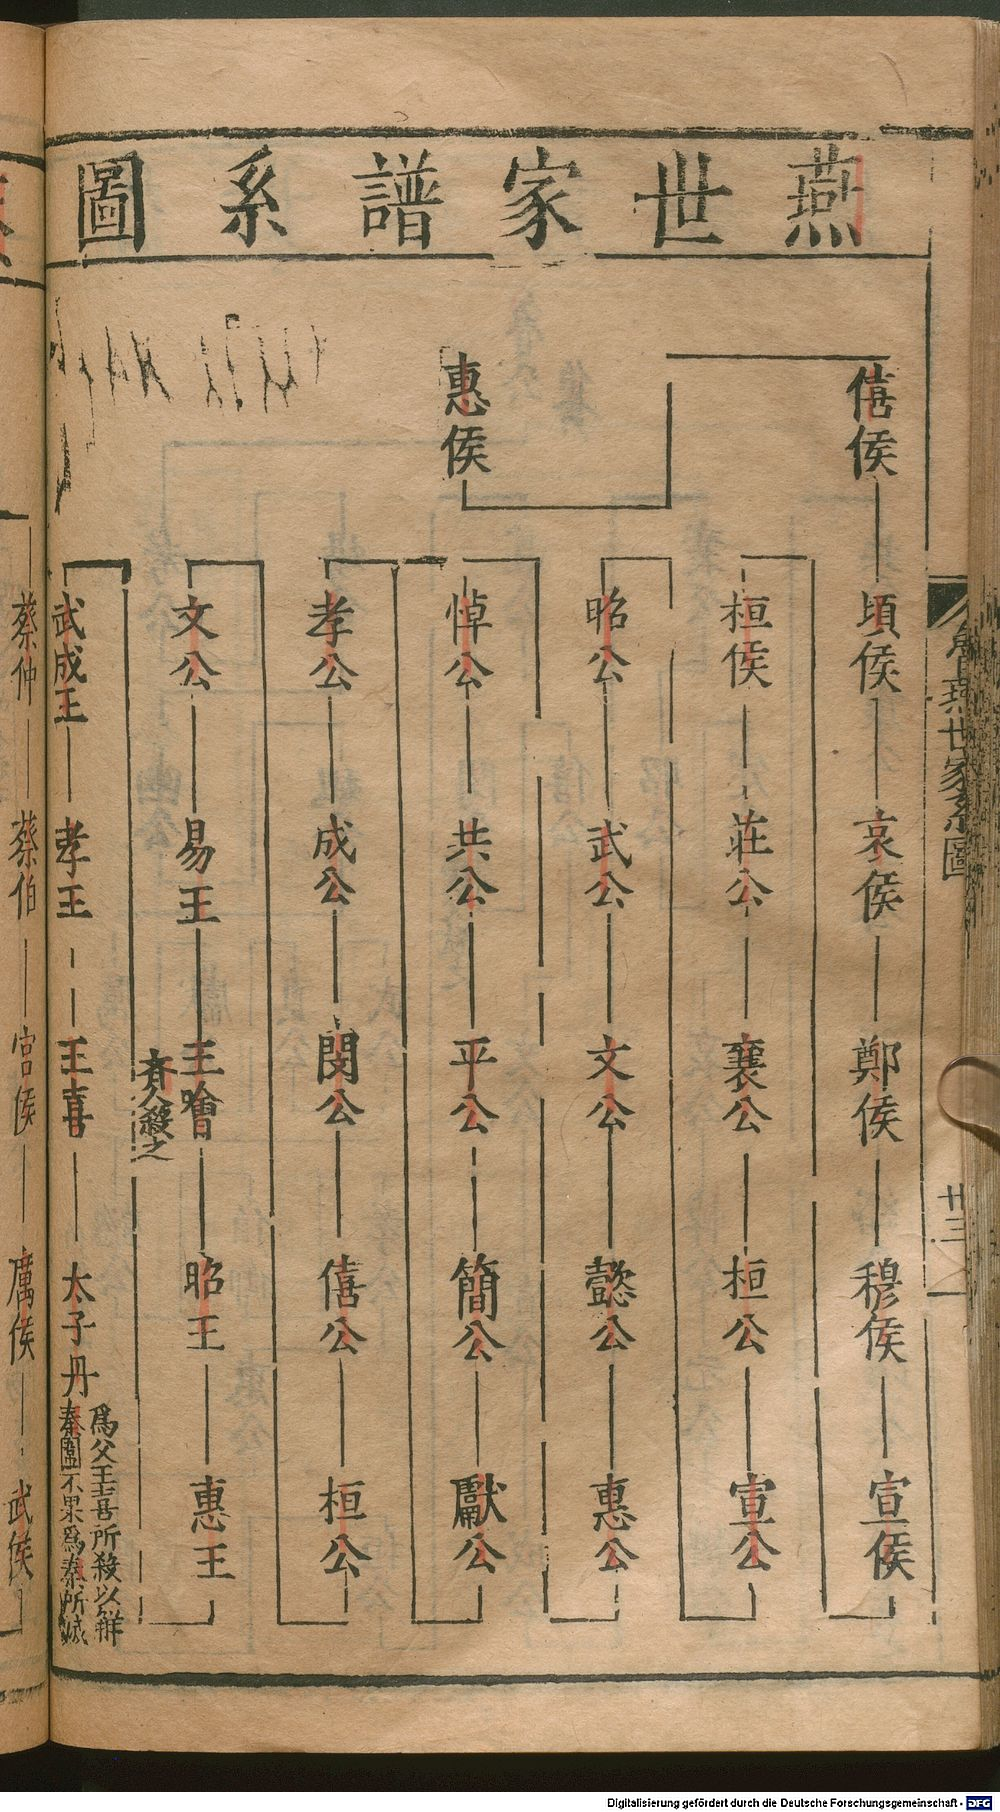 燕世家譜系圖
惠侯
僖侯
頃侯
哀侯
鄭侯
穆侯
宣侯
桓侯
莊公
襄公
桓公
宣公
昭公
武公
文公
懿公
惠公
悼公
共公
平公
簡公
獻公
孝公
成公
閔公
僖公
桓公
文公
易王
王噲
齊人殺之
昭王
惠王
武成王
孝王
王喜
太子丹
爲父王喜所殺以辦
秦圖不果爲秦所滅
世家系圖
廿三
蔡仲
蔡伯
宮侯
厲侯
武侯
Digitalisierung gefördert durch die Deutsche Forschungsgemeinschaft - DFG